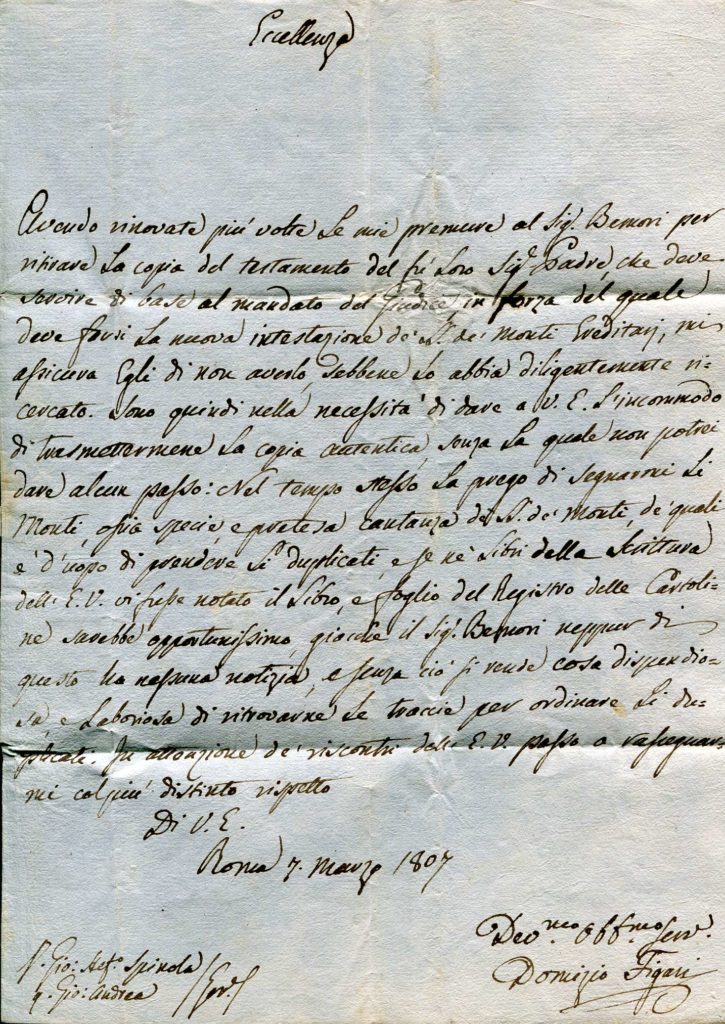 Eccellenza
Avendo rinovate più volte le mie premure al Sig.r Bemori per
ritirare la copia del testamento del fù Loro Sig.r Padre, che deve
servire di base al mandato del Giudice in forza del quale
deve farsi la nuova intestazione de' LL. dei Monti Ereditarj, mi
assicura Egli di non averlo, sebbene lo abbia diligentemente ri-
cercato. Sono quindi nella necessità di dare a V. E. l'incommodo
di trasmettermene la copia autentica, senza la quale non potrei
dare alcun passo: Nel tempo stesso la prego di segnarmi li
Monti, osia specie, e pretesa cantanza de LL. de' Monti, de' quali
è d'uopo di prendere li duplicati, e se ne' libri della Scrittura
dell' E. V. vi fusse notato il Libro, e foglio del Registro delle Cartoli-
ne sarebbe opportunissimo, giacchè il Sig.r Bemori neppur di
questo ha nessuna notizia, e senza ciò si rende cosa dispendio-
sa, e laboriosa di ritrovarne le traccie per ordinare li du-
plicati. In attenzione de' riscontri dell' E. V. passo a rassegnar-
mi col più distinto rispetto
Di V. E.
Roma 7. Marzo 1807
Dev.mo Obb.mo Serv.
Domizio Figari
Gio: Spinola
q. Gio: Andrea